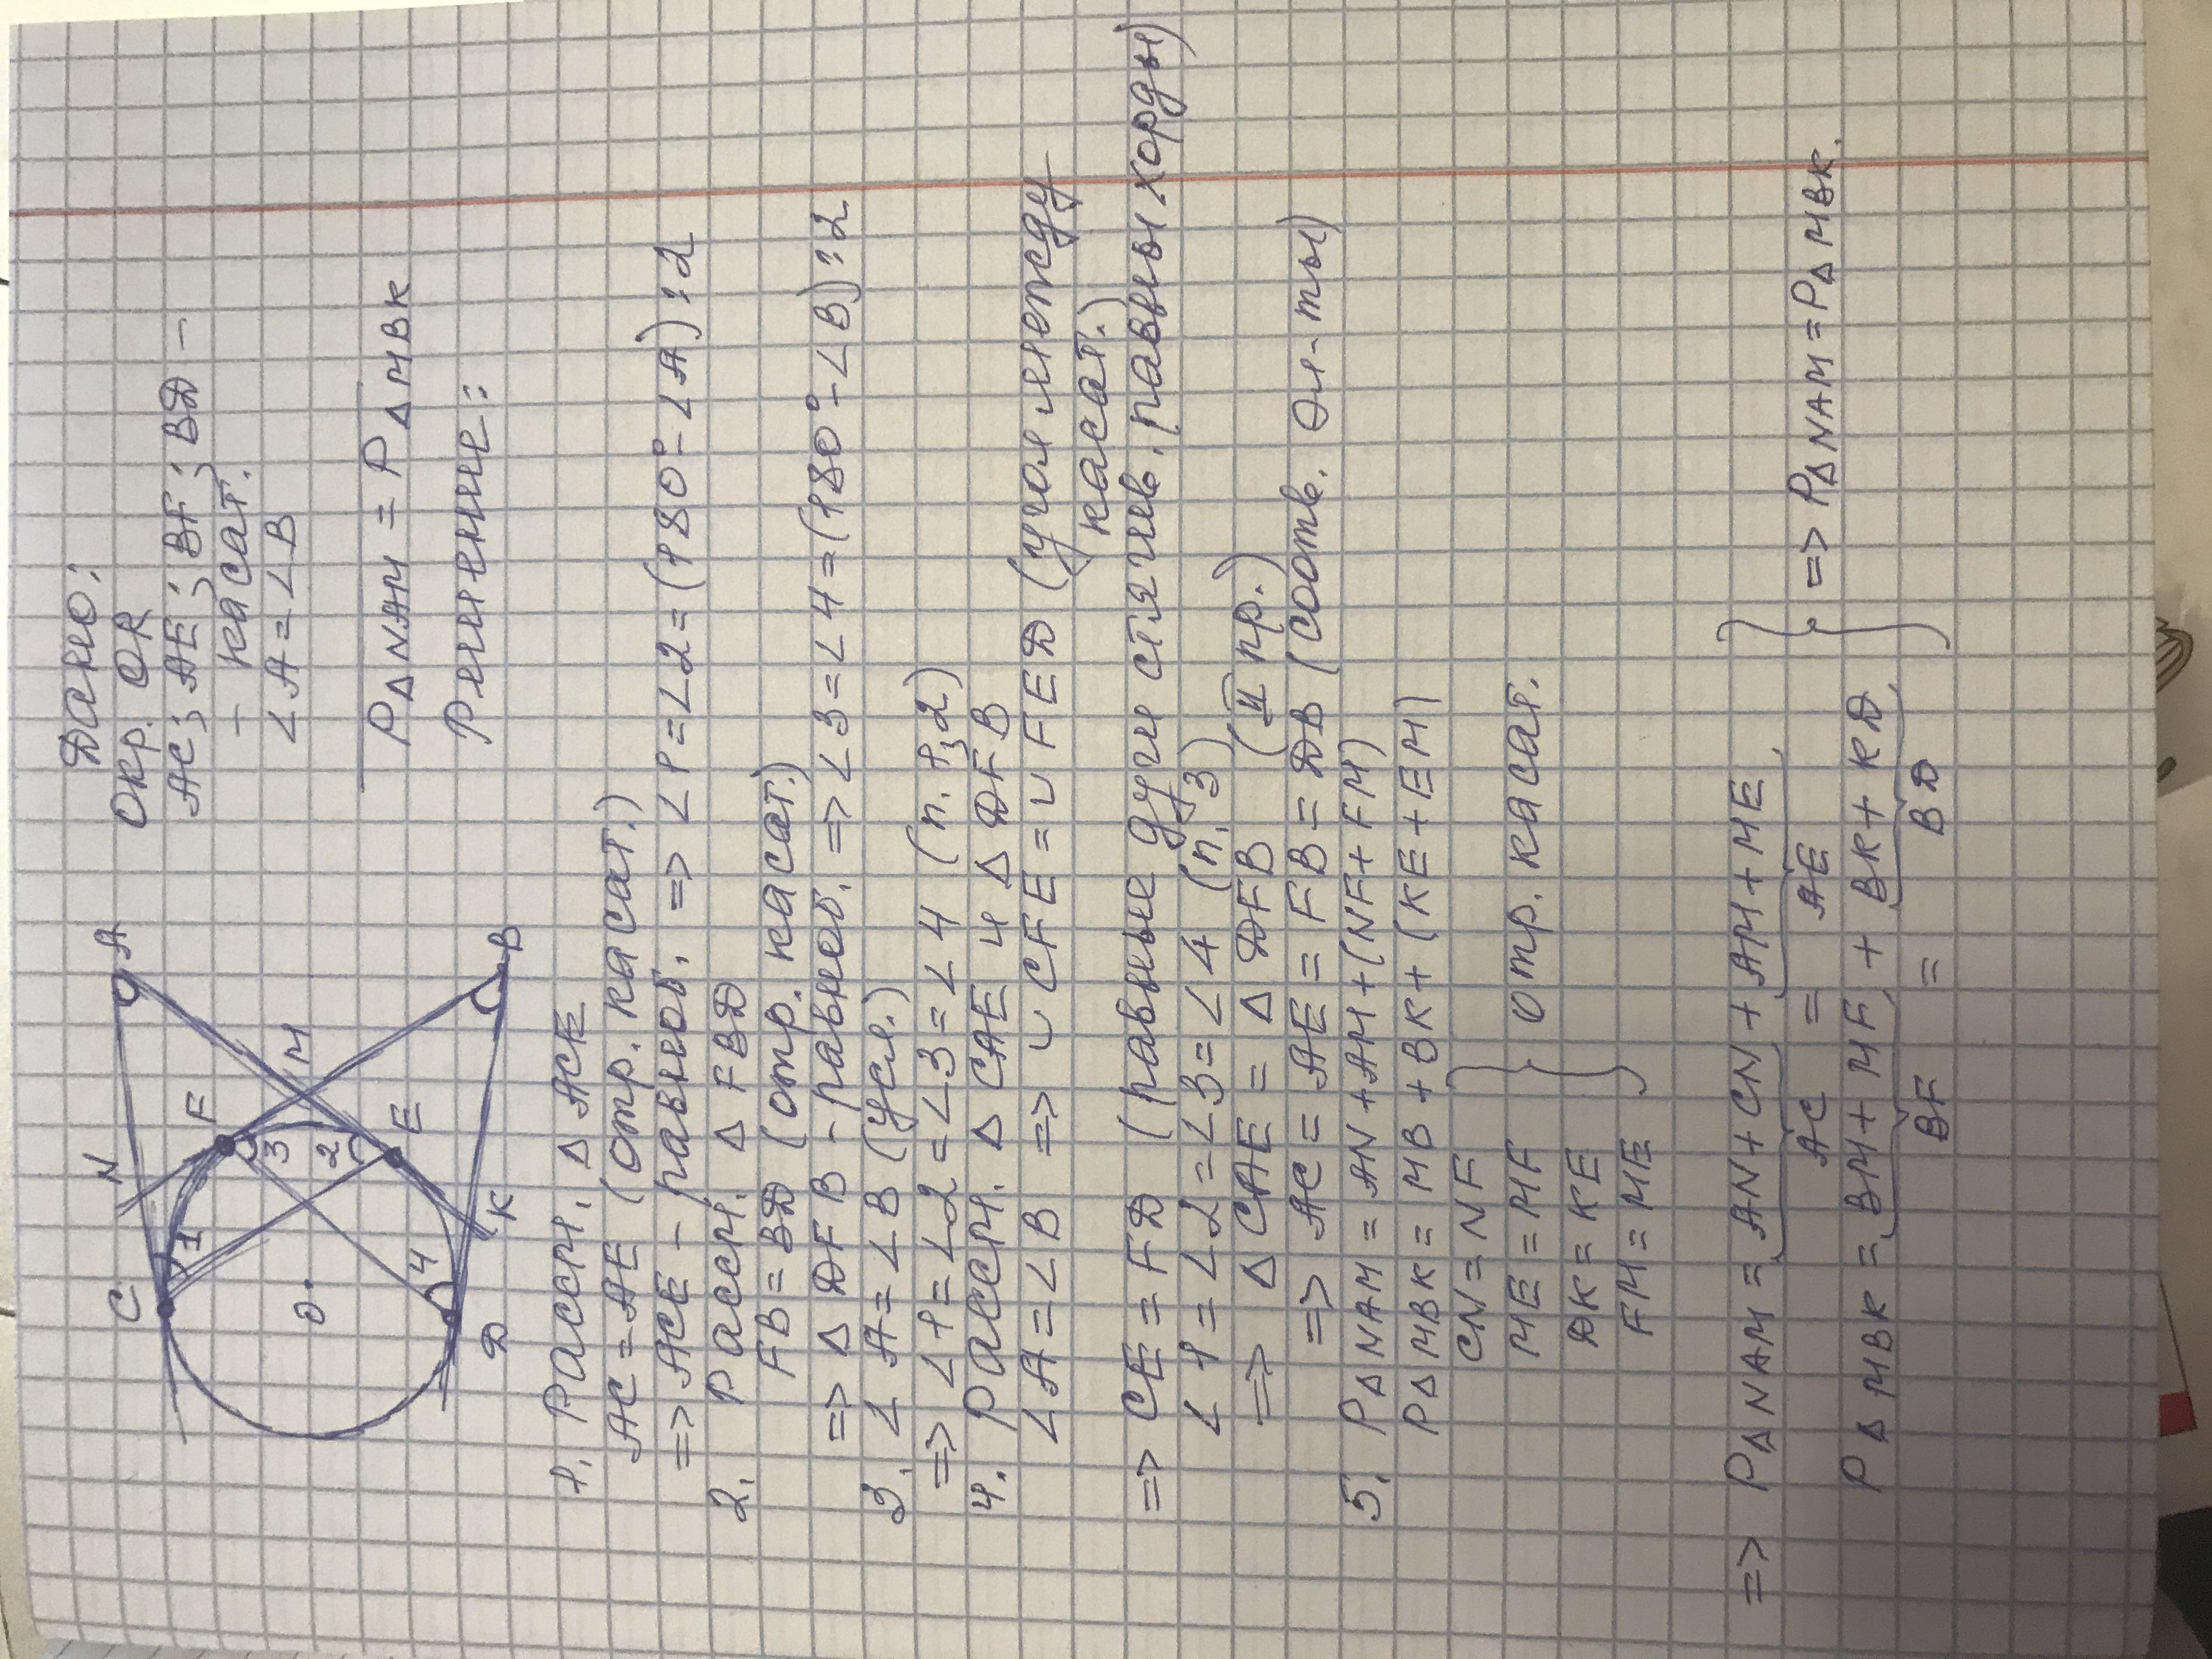 Дано:
Окр. OR
AC; AE; BF; BD –
– касат.
∠A = ∠B
P△NAM = P△MBK
Решение:
C
N
F
A
M
O
1
3
2
E
4
D
K
B
1. Рассм. △ ACE
AC = AE (отр. касат.)
=> ACE – равноб. => ∠1 = ∠2 = (180° – ∠A) : 2
2. Рассм. △ FBD
FB = BD (отр. касат.)
=> △ DFB – равноб. => ∠3 = ∠4 = (180° – ∠B) : 2
3. ∠A = ∠B (усл.)
=> ∠1 = ∠2 = ∠3 = ∠4 (п. 1, 2)
4. Рассм. △ CAE и △ DFB
∠A = ∠B => ∪ CFE = ∪ FED (угол между
касат.)
=> CE = FD (равные дуги стягив. равны хорды)
∠1 = ∠2 = ∠3 = ∠4 (п. 3)
=> △ CAE = △ DFB (II пр.)
=> AC = AE = FB = DB (соотв. эл-ты)
5. P△NAM = AN + AM + (NF + FM)
P△MBK = MB + BK + (KE + EM)
CN = NF
ME = MF
DK = KE
FM = ME
} отр. касат.
=> P△NAM = AN + CN + AM + ME
AC = AE
P△MBK = BM + MF + BK + KD
BF = BD
} => P△NAM = P△MBK.